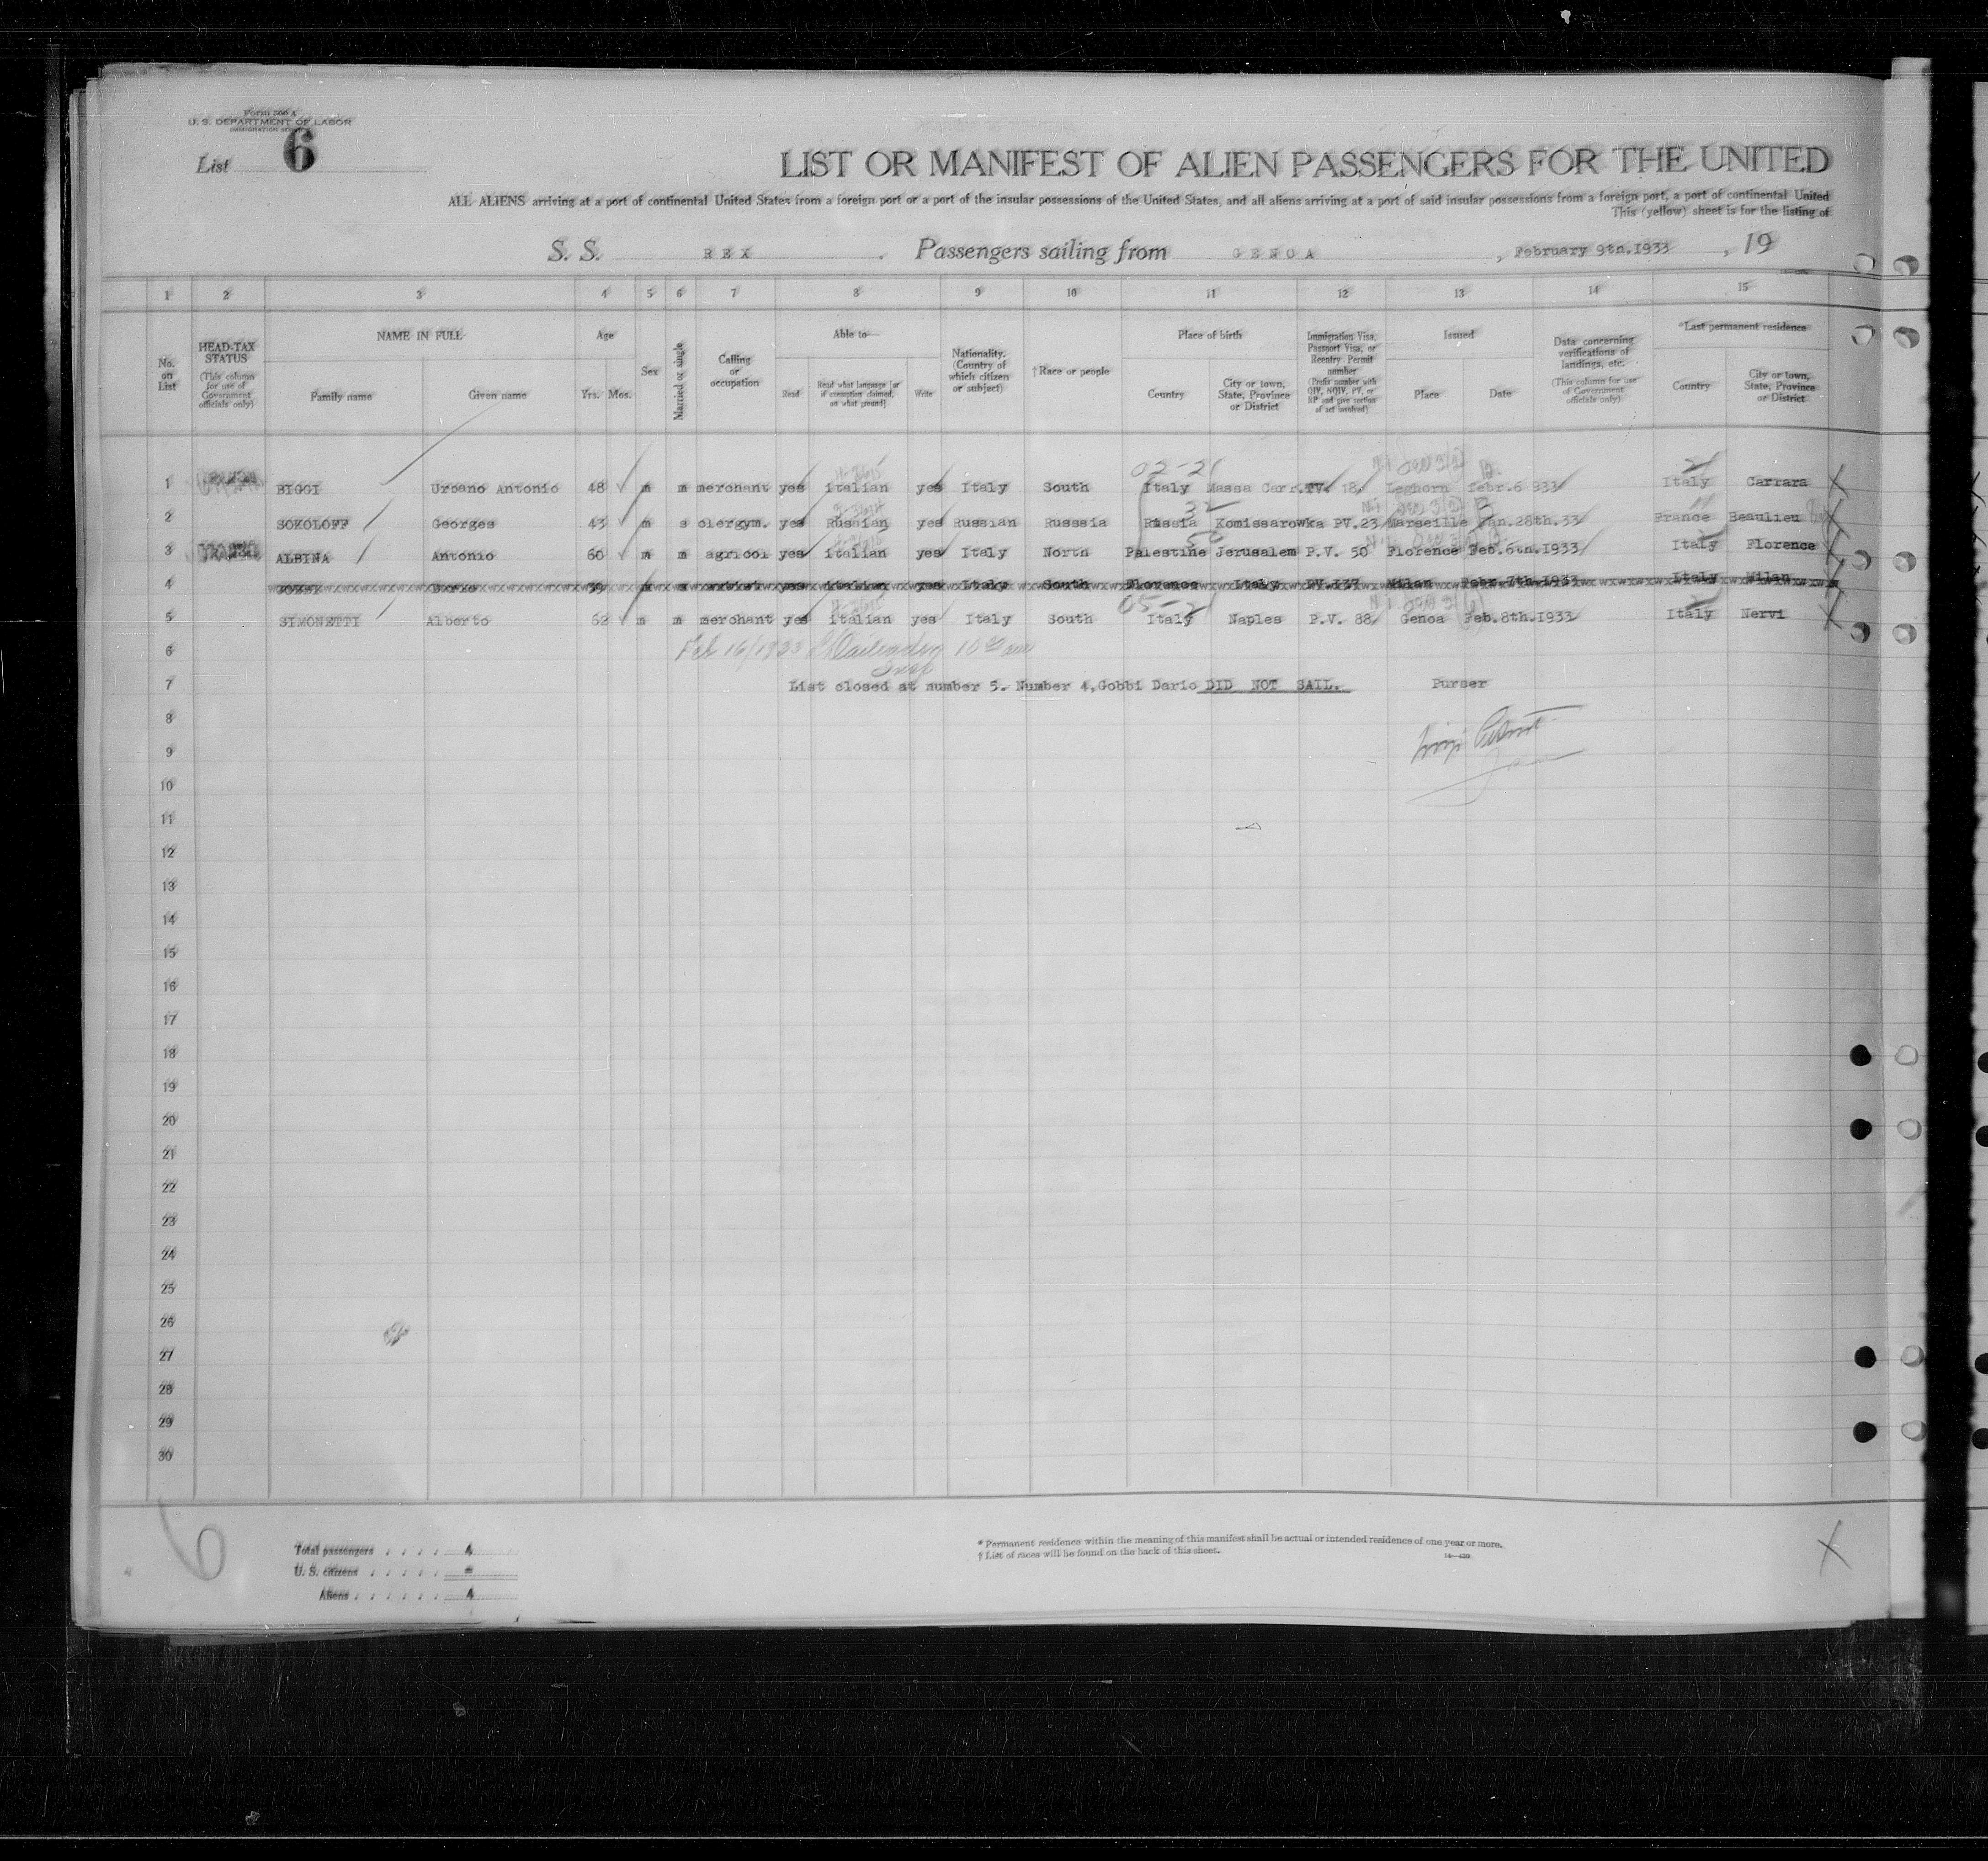 Form 500 A
U. S. DEPARTMENT OF LABOR
IMMIGRATION SERVICE
List 6
LIST OR MANIFEST OF ALIEN PASSENGERS FOR THE UNITED
ALL ALIENS arriving at a port of continental United States from a foreign port or a port of the insular possessions of the United States, and all aliens arriving at a port of said insular possessions from a foreign port, a port of continental United
This (yellow) sheet is for the listing of
S. S. REX, Passengers sailing from GENOA, February 9th.1933, 19
1 2 3 4 5 6 7 8 9 10 11 12 13 14 15
No. on List
HEAD-TAX STATUS (This column for use of Government officials only)
NAME IN FULL
Family name Given name
Age
Yrs. Mos.
Sex
Married or single
Calling or occupation
Able to—
Read Read what language [or if exemption claimed, on what ground] Write
Nationality. (Country of which citizen or subject)
†Race or people
Place of birth
Country City or town, State, Province or District
Immigration Visa, Passport Visa, or Reentry Permit number (Prefix number with QIV, NQIV, PV, or RP and give section of act involved)
Issued
Place Date
Data concerning verifications of landings, etc. (This column for use of Government officials only)
*Last permanent residence
Country City or town, State, Province or District
02-2
1 BIGGI Urbano Antonio 48 m m merchant yes italian yes Italy South Italy Massa Carr. PV. 18 Leghorn febr.6 933 Italy Carrara X
2 SOKOLOFF Georges 43 m s clergym. yes Russian yes Russian Russsia Russia Komissarowka PV.23 Marseille Jan.28th.33 France Beaulieu
3 ALBINA Antonio 60 m m agricol yes italian yes Italy North Palestine Jerusalem P.V. 50 Florence Feb.6th.1933 Italy Florence
4 39 m yes italian yes Italy South Florence Italy PV.137 Milan Febr.7th.1933 Italy Milan
05-2
5 SIMONETTI Alberto 62 m m merchant yes italian yes Italy South Italy Naples P.V. 88 Genoa Feb.8th.1933 Italy Nervi X
6 Feb 16/1933
7 List closed at number 5. Number 4,Gobbi Dario DID NOT SAIL. Purser
8
9
10
11
12
13
14
15
16
17
18
19
20
21
22
23
24
25
26
27
28
29
30
6
Total passengers . . . . 4
U. S. citizens . . . . . . =
Aliens . . . . . . 4
* Permanent residence within the meaning of this manifest shall be actual or intended residence of one year or more.
† List of races will be found on the back of this sheet.
X